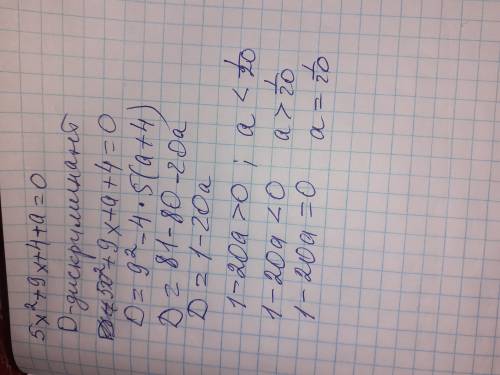 5x²+9x+4+a=0
D-дискриминант
5x²+9x+a+4=0
D=9²-4·5(a+4)
D=81-80-20a
D=1-20a
1-20a>0; a<1/20
1-20a<0 a>1/20
1-20a=0 a=1/20